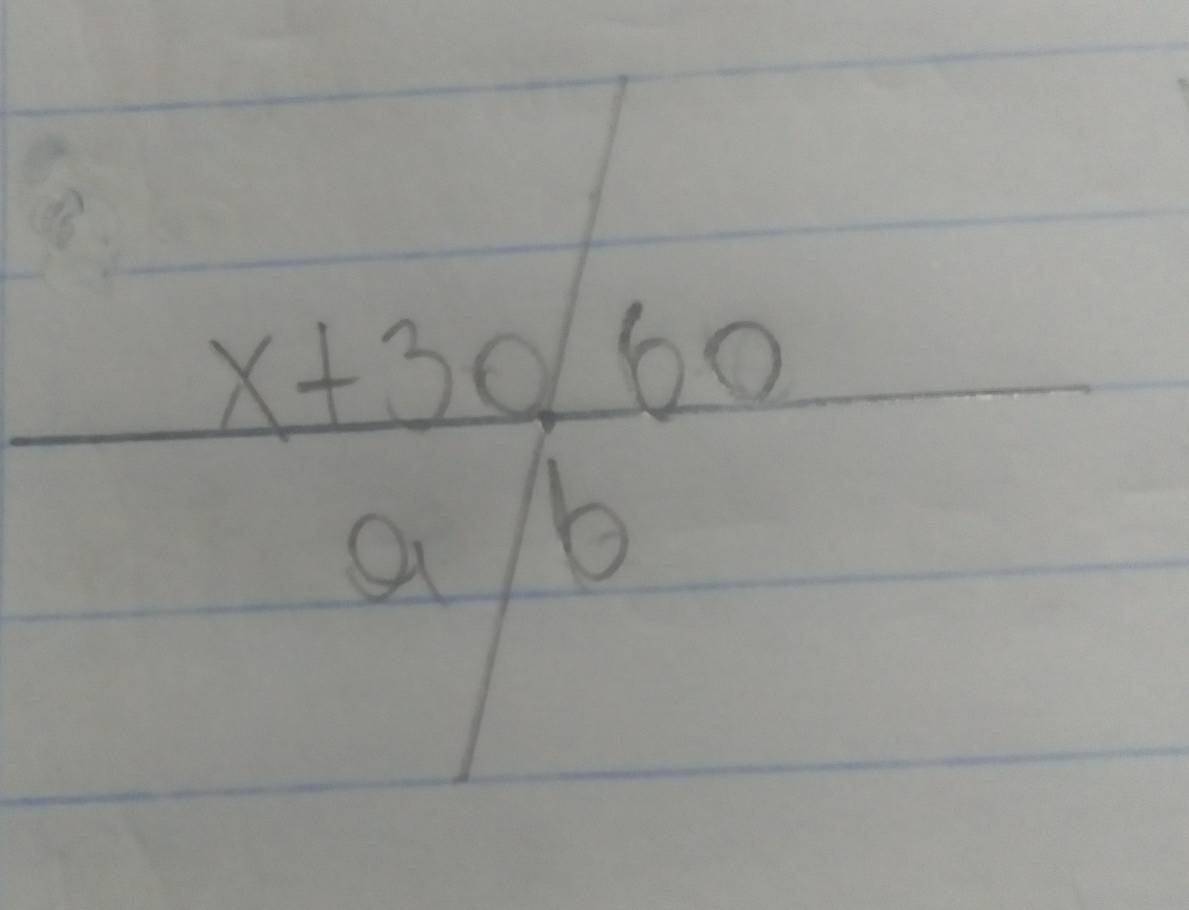 x+30 60
a b